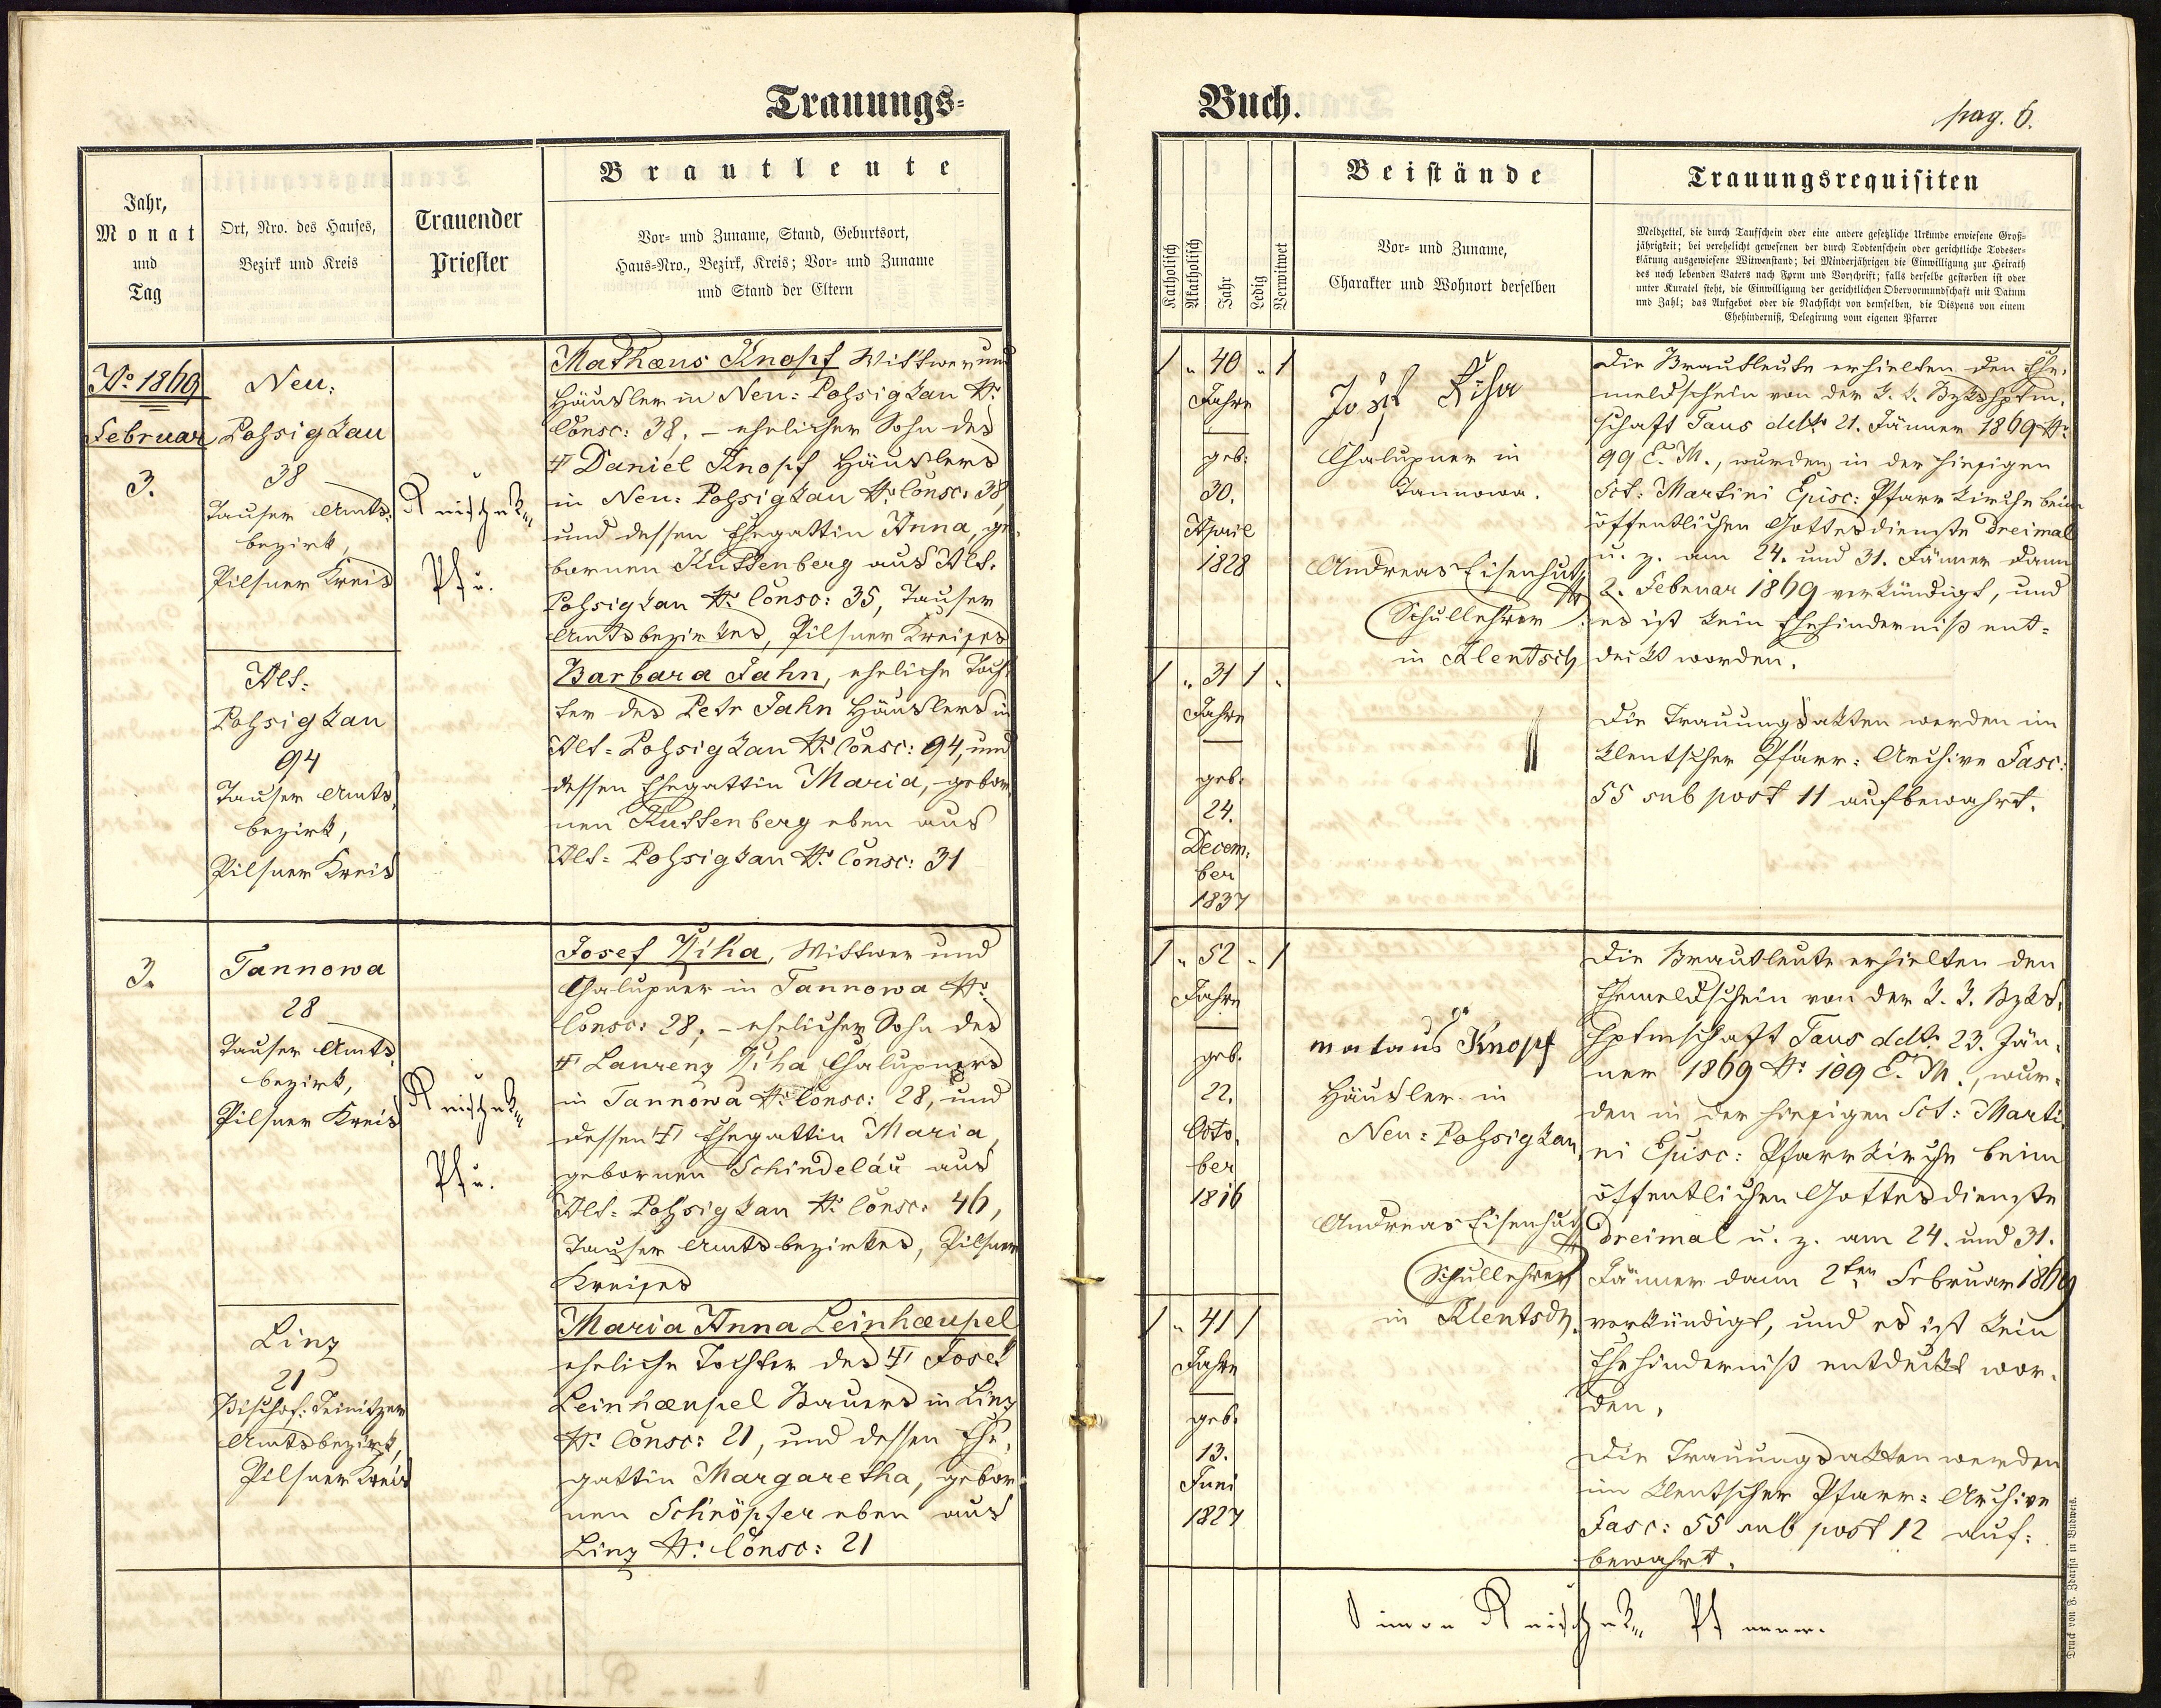 Trauungs-
Buch.
pag. 6.
Jahr,
Monat
und
Tag
Ort, Nro. des Hauses,
Bezirk und Kreis
Trauender
Priester
Brautleute
Vor- und Zuname, Stand, Geburtsort,
Haus-Nro., Bezirk, Kreis; Vor- und Zuname
und Stand der Eltern
Katholisch
Akatholisch
Jahr
Ledig
Verwitwet
Beistände
Vor- und Zuname,
Charakter und Wohnort derselben
Trauungsrequisiten
Meldzettel, die durch Taufschein oder eine andere gesetzliche Urkunde erwiesene Groß-
jährigkeit; bei verehelicht gewesenen der durch Todtenschein oder gerichtliche Todeser-
klärung ausgewiesene Witwenstand; bei Minderjährigen die Einwilligung zur Heirath
des noch lebenden Vaters nach Form und Vorschrift; falls derselbe gestorben ist oder
unter Kuratel steht, die Einwilligung der gerichtlichen Obervormundschaft mit Datum
und Zahl; das Aufgebot oder die Nachsicht von demselben, die Dispens von einem
Ehehinderniß, Delegirung vom eigenen Pfarrer
No 1869
Februar
3.
Neu:
Pohsigkau
38
Tauser Amts-
bezirk,
Pilsner Kreis
Mathæus Knopf Wittwer und
Häusler in Neu-Pohsigkau No
Consc: 38. – ehelicher Sohn des
† Daniel Knopf Häuslers
in Neu-Pohsigkau No Consc: 38,
und dessen Ehegattin Anna, ge-
bornen Kuttenberg aus Alt-
Pohsigkau No Consc: 35, Tauser
Amtsbezirkes, Pilsner Kreises
Alt-
Pohsigkau
94
Tauser Amts-
bezirk,
Pilsner Kreis
Barbara Jahn, eheliche Toch-
ter des Petr Jahn Häuslers in
Alt-Pohsigkau No Consc: 94, und
dessen Ehegattin Maria, gebor-
nen Kuttenberg eben aus
Alt-Pohsigkau No Consc: 31
1 " 40 " 1
Jahre
geb:
30.
April
1828
1 " 31 1 "
Jahre
geb.
24.
Decem-
ber
1837
Chalupner in
Tannowa.
Andreas Eisenhut
Schullehrer
in Klentsch
Die Brautleute erhielten den Ehe-
meldschein von der k. k. Bzkshptm-
schaft Taus ddto 21. Jänner 1869 No
99 E. M., wurden in der hiesigen
Sct: Martini Episc: Pfarrkirche beim
öffentlichen Gottesdienste dreimal
u. z. am 24. und 31. Jänner dann
2. Februar 1869 verkündigt, und
es ist kein Ehehinderniß ent-
deckt worden.
Die Trauungsakten werden im
Klentscher Pfarr-Archive Fasc:
55 sub post 11 aufbewahrt.
3.
Tannowa
28
Tauser Amts-
bezirk,
Pilsner Kreis
Josef Řiha, Wittwer und
Chalupner in Tannowa No
Consc: 28. – ehelicher Sohn des
† Laurenz Řiha Chalupners
in Tannowa No Consc: 28, und
dessen † Ehegattin Maria,
gebornen Schindelář aus
Alt-Pohsigkau No Consc: 46,
Tauser Amtsbezirkes, Pilsner
Kreises
Linz
21
Bischof-Teinitzer
Amtsbezirk,
Pilsner Kreis
Maria Anna Leinhæupel
eheliche Tochter des † Josef
Leinhæupel Bauers in Linz
No Consc: 21, und dessen Ehe-
gattin Margaretha, gebor-
nen Schnöpfer eben aus
Linz No Consc: 21
1 " 52 " 1
Jahre
geb.
22.
Octo-
ber
1816
1 " 41 1
Jahre
geb.
13.
Juni
1827
mataus Knopf
Häusler in
Neu-Pohsigkau
Andreas Eisenhut
Schullehrer
in Klentsch
Die Brautleute erhielten den
Ehemeldschein von der k. k. Bzks-
hptmschaft Taus ddto 23. Jän-
ner 1869 No 109 E. M., wur-
den in der hiesigen Sct: Marti-
ni Episc: Pfarrkirche beim
öffentlichen Gottesdienste
dreimal u. z. am 24. und 31.
Jänner dann 2ten Februar 1869
verkündigt, und es ist kein
Ehehinderniß entdeckt wor-
den.
Die Trauungsakten werden
im Klentscher Pfarr-Archive
Fasc: 55 sub post 12 auf-
bewahrt.
Druck von F. Zdarssa in Budweis.